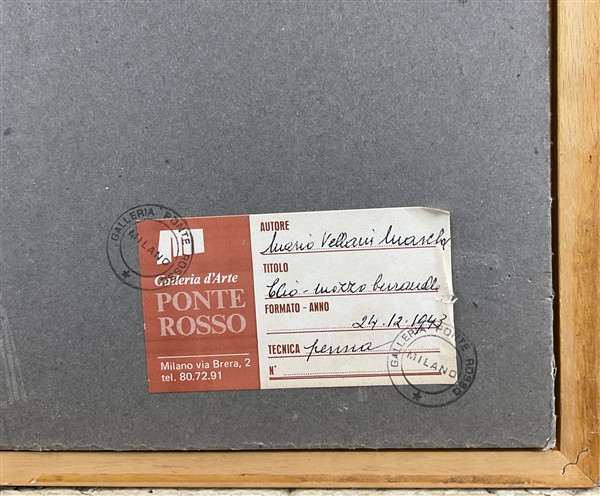 GALLERIA PONTE ROSSO
MILANO
Galleria d'Arte
PONTE
ROSSO
Milano via Brera, 2
tel. 80.72.91
AUTORE
Mario Vellani Marchi
TITOLO
Clio - mozzo
FORMATO - ANNO
24.12.1943
TECNICA penna
N°
GALLERIA PONTE ROSSO
MILANO